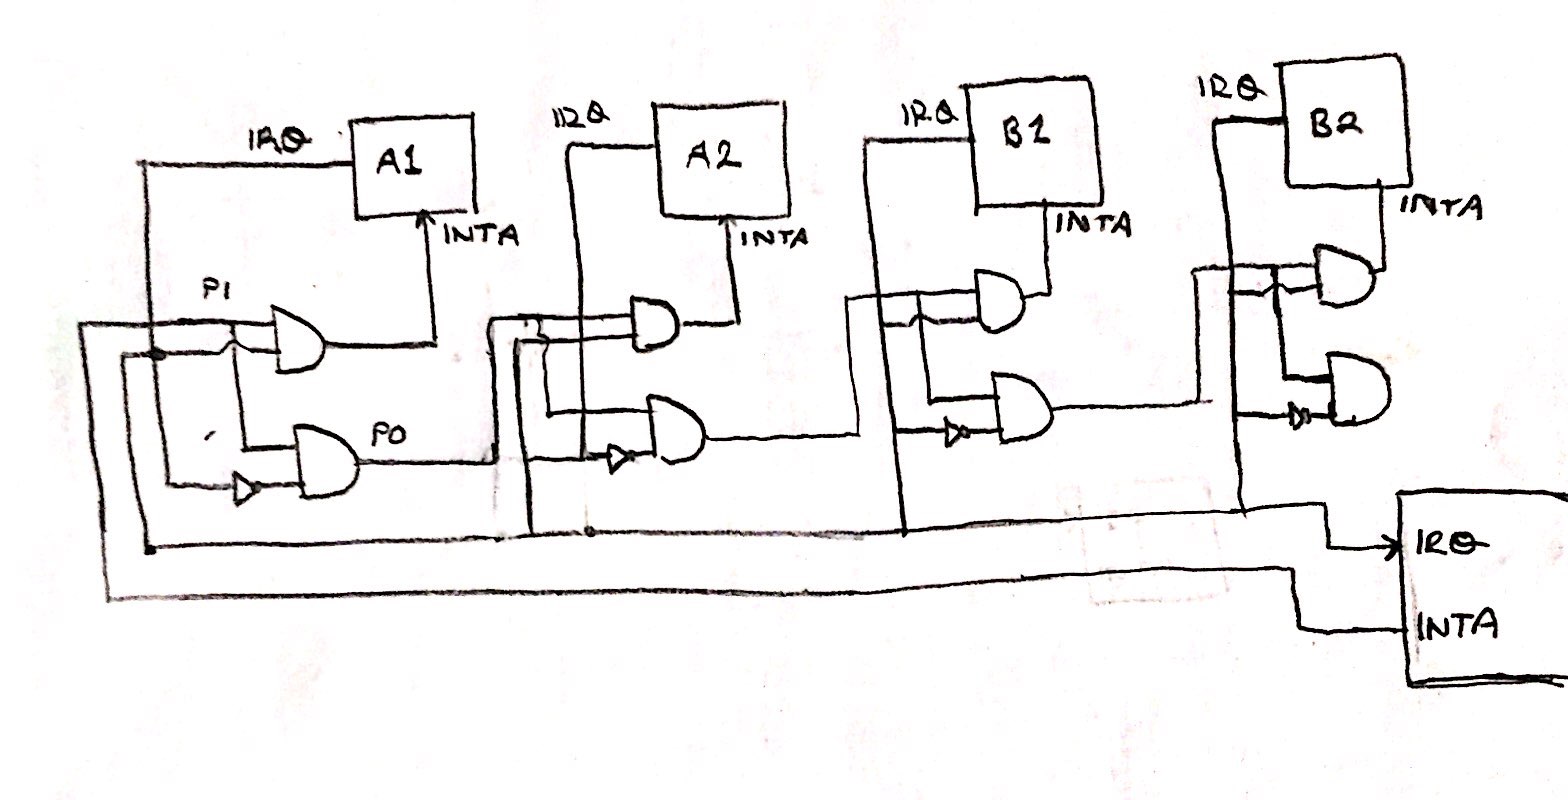 IRQ
A1
INTA
IRQ
A2
INTA
IRQ
B1
INTA
IRQ
B2
INTA
PI
PO
IRQ
INTA